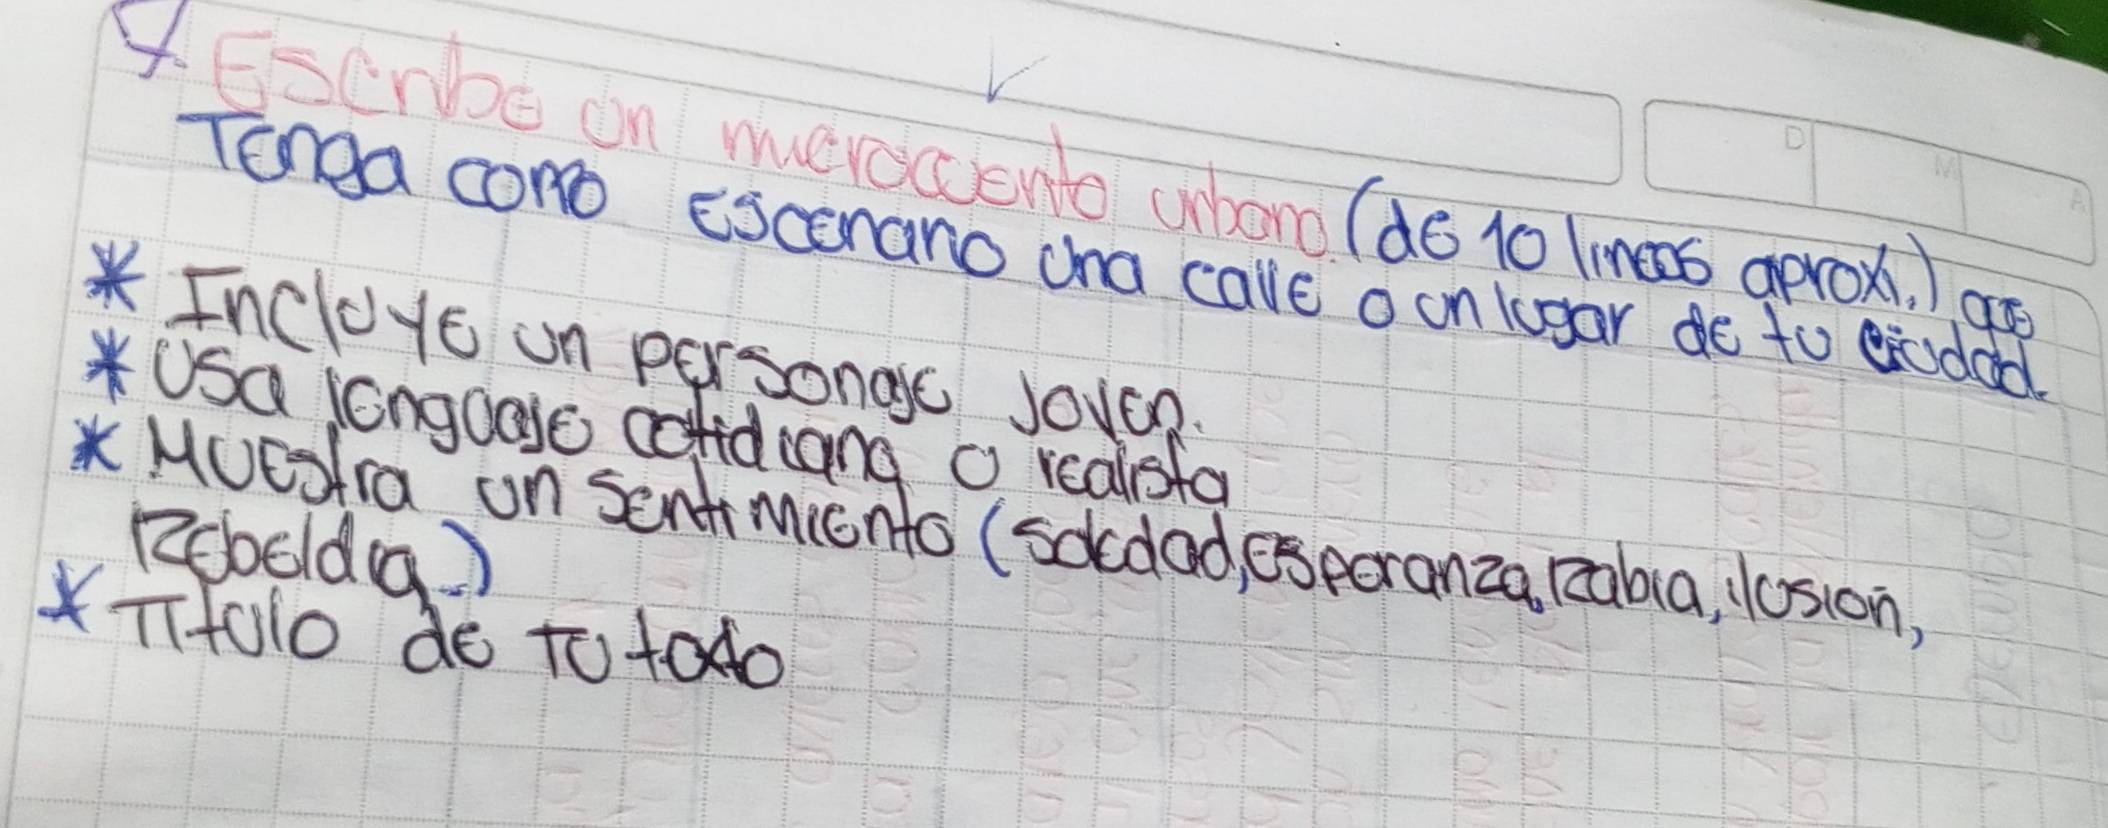 4. Escribe un microcuento urbano. (de 10 lineas aproxi.) que
Tenga como escenario una calle o un lugar de tu ciudad.
* Incluye un personaje joven.
* Usa lenguaje cotidiano o realista
* Muestra un sentimiento (soledad, esperanza, Rabia, ilusion,
Rebeldia.)
* Titulo de To todo
D M A